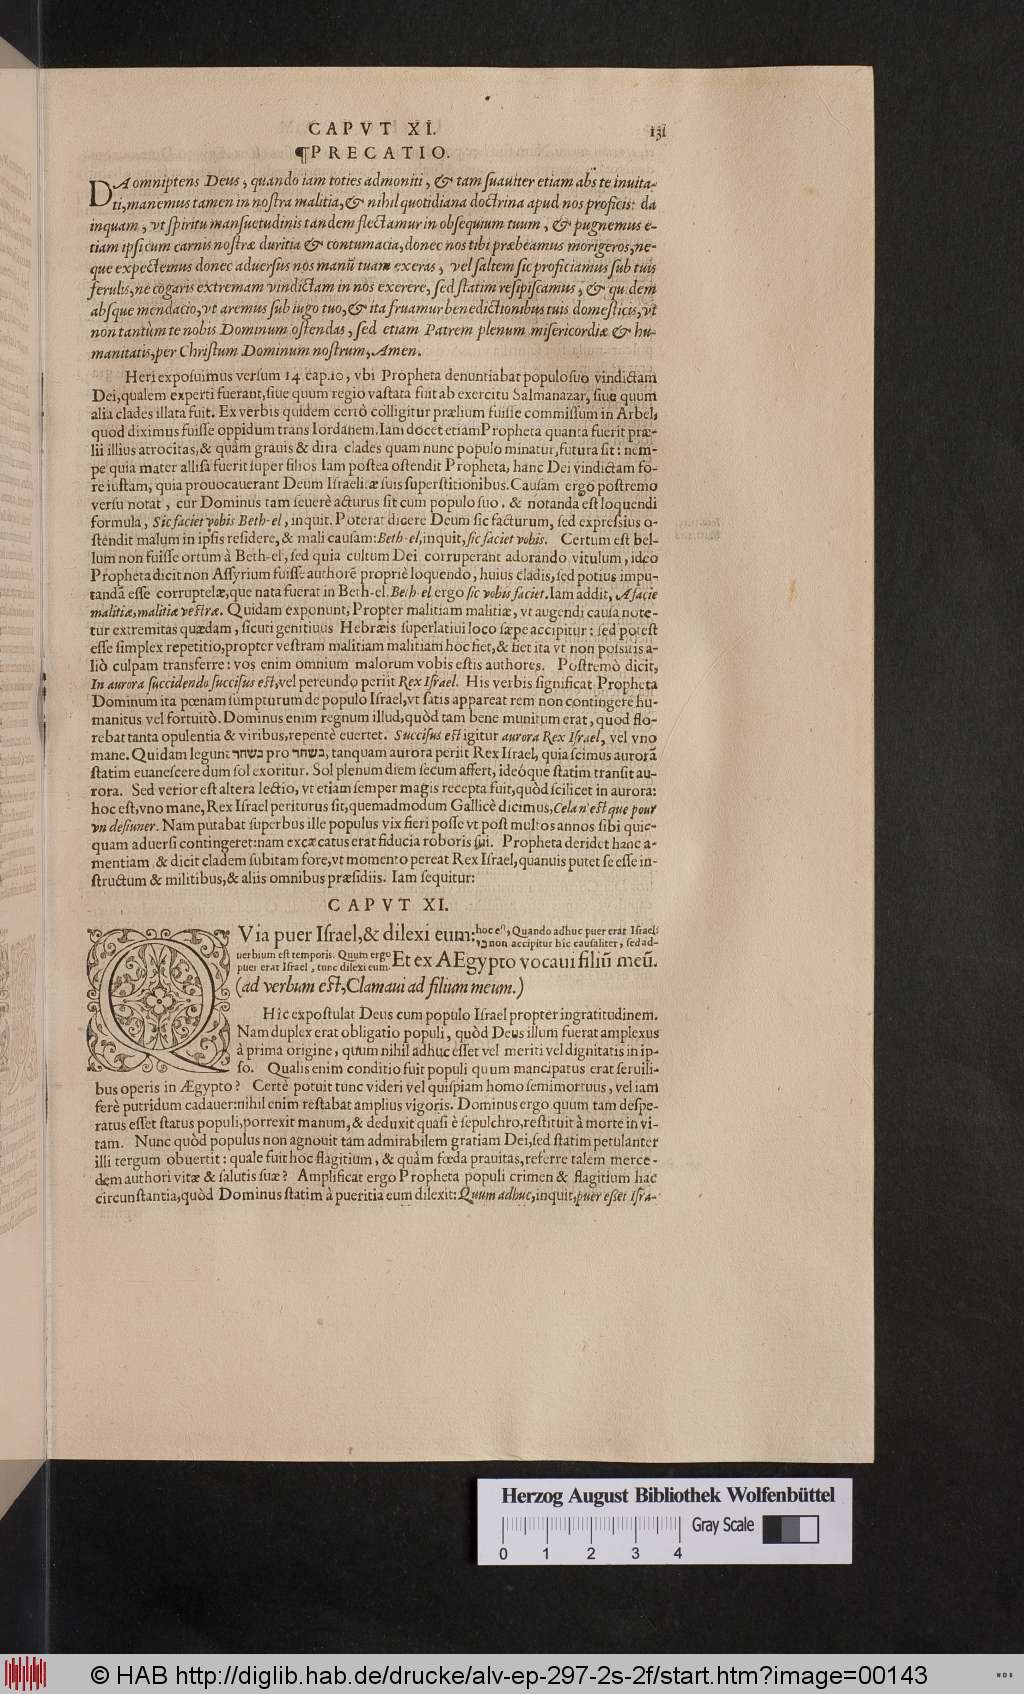 CAPVT XI.
131
¶PRECATIO.
DA omniptens Deus, quando iam toties admoniti, & tam suauiter etiam abs te inuita-
ti, manemus tamen in nostra malitia, & nihil quotidiana doctrina apud nos proficis: da
inquam, vt spiritu mansuetudinis tandem flectamur in obsequium tuum, & pugnemus e-
tiam ipsi cum carnis nostræ duritia & contumacia, donec nos tibi præbeamus morigeros, ne-
que expectemus donec aduersus nos manū tuam exeras, vel saltem sic proficiamus sub tuis
ferulis, ne cogaris extremam vindictam in nos exerere, sed statim resipiscamus, & quidem
absque mendacio, vt aremus sub iugo tuo, & ita fruamur benedictionibus tuis domesticis, vt
non tantùm te nobis Dominum ostendas, sed etiam Patrem plenum misericordiæ & hu-
manitatis, per Christum Dominum nostrum, Amen.
Heri exposuimus versum 14 cap.10, vbi Propheta denuntiabat populo suo vindictam
Dei, qualem experti fuerant, siue quum regio vastata fuit ab exercitu Salmanazar, siue quum
alia clades illata fuit. Ex verbis quidem certò colligitur prælium fuisse commissum in Arbel,
quod diximus fuisse oppidum trans Iordanem. Iam docet etiam Propheta quanta fuerit præ-
lii illius atrocitas, & quàm grauis & dira clades quam nunc populo minatur, futura sit: nem-
pe quia mater allisa fuerit super filios Iam postea ostendit Propheta, hanc Dei vindictam fo-
re iustam, quia prouocauerant Deum Israelitæ suis superstitionibus. Causam ergo postremo
versu notat, cur Dominus tam seuerè acturus sit cum populo suo. & notanda est loquendi
formula, Sic faciet vobis Beth-el, inquit. Poterat dicere Deum sic facturum, sed expressius o-
stendit malum in ipsis residere, & mali causam: Beth-el, inquit, sic faciet vobis. Certum est bel-
lum non fuisse ortum à Beth-el, sed quia cultum Dei corruperant adorando vitulum, ideo
Propheta dicit non Assyrium fuisse authorē propriè loquendo, huius cladis, sed potius impu-
tandā esse corruptelæ, que nata fuerat in Beth-el. Beth-el ergo sic vobis faciet. Iam addit, A facie
malitiæ, malitiæ vestræ. Quidam exponunt, Propter malitiam malitiæ, vt augendi causa note-
tur extremitas quædam, sicuti genitiuus Hebræis superlatiui loco sæpe accipitur: sed potest
esse simplex repetitio, propter vestram malitiam malitiam hoc fiet, & fiet ita vt non possitis a-
liò culpam transferre: vos enim omnium malorum vobis estis authores. Postremò dicit,
In aurora succidendo succisus est, vel pereundo periit Rex Israel. His verbis significat Propheta
Dominum ita pœnam sumpturum de populo Israel, vt satis appareat rem non contingere hu-
manitus vel fortuitò. Dominus enim regnum illud, quòd tam bene munitum erat, quod flo-
rebat tanta opulentia & viribus, repentè euertet. Succisus est igitur aurora Rex Israel, vel vno
mane. Quidam legunt כשחר pro בשחר, tanquam aurora periit Rex Israel, quia scimus aurorā
statim euanescere dum sol exoritur. Sol plenum diem secum affert, ideóque statim transit au-
rora. Sed verior est altera lectio, vt etiam semper magis recepta fuit, quòd scilicet in aurora:
hoc est, vno mane, Rex Israel periturus sit, quemadmodum Gallicè dicimus, Cela n'est que pour
vn desiuner. Nam putabat superbus ille populus vix fieri posse vt post multos annos sibi quic-
quam aduersi contingeret: nam excæcatus erat fiducia roboris sui. Propheta deridet hanc a-
mentiam & dicit cladem subitam fore, vt momento pereat Rex Israel, quanuis putet se esse in-
structum & militibus, & aliis omnibus præsidiis. Iam sequitur:
CAPVT XI.
QVia puer Israel, & dilexi eum: hoc est, Quando adhuc puer erat Israel:
כי non accipitur hic causaliter, sed ad-
uerbium est temporis. Quum ergo
puer erat Israel, tunc dilexi eum. Et ex AEgypto vocaui filiū meū.
(ad verbum est, Clamaui ad filium meum.)
Hic expostulat Deus cum populo Israel propter ingratitudinem.
Nam duplex erat obligatio populi, quòd Deus illum fuerat amplexus
à prima origine, quum nihil adhuc esset vel meriti vel dignitatis in ip-
so. Qualis enim conditio fuit populi quum mancipatus erat seruili-
bus operis in Ægypto? Certè potuit tunc videri vel quispiam homo semimortuus, vel iam
ferè putridum cadauer: nihil enim restabat amplius vigoris. Dominus ergo quum tam despe-
ratus esset status populi, porrexit manum, & deduxit quasi è sepulchro, restituit à morte in vi-
tam. Nunc quòd populus non agnouit tam admirabilem gratiam Dei, sed statim petulanter
illi tergum obuertit: quale fuit hoc flagitium, & quàm fœda prauitas, referre talem merce-
dem authori vitæ & salutis suæ? Amplificat ergo Propheta populi crimen & flagitium hac
circunstantia, quòd Dominus statim à pueritia eum dilexit: Quum adhuc, inquit, puer esset Isra-
Herzog August Bibliothek Wolfenbüttel
Gray Scale
0 1 2 3 4
© HAB http://diglib.hab.de/drucke/alv-ep-297-2s-2f/start.htm?image=00143